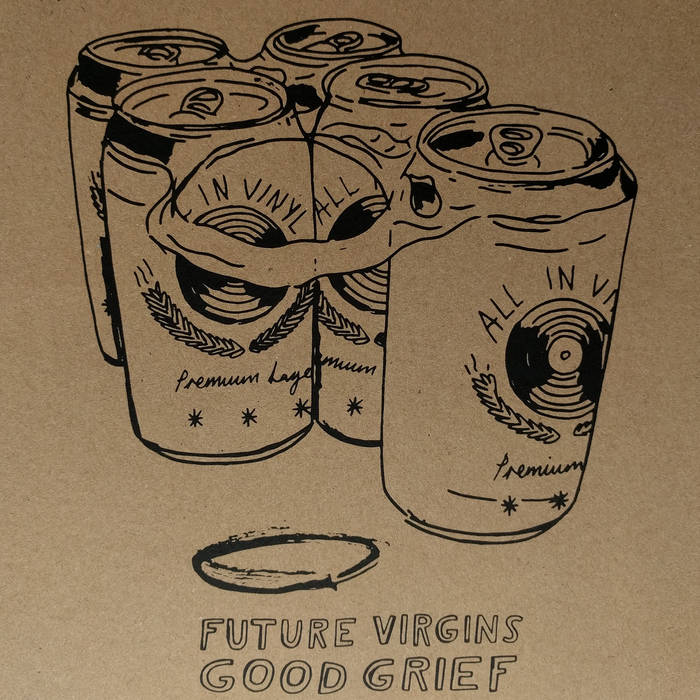 IN VINYL
ALL
ALL IN
Premium Lage
mium
Premium
FUTURE VIRGINS
GOOD GRIEF